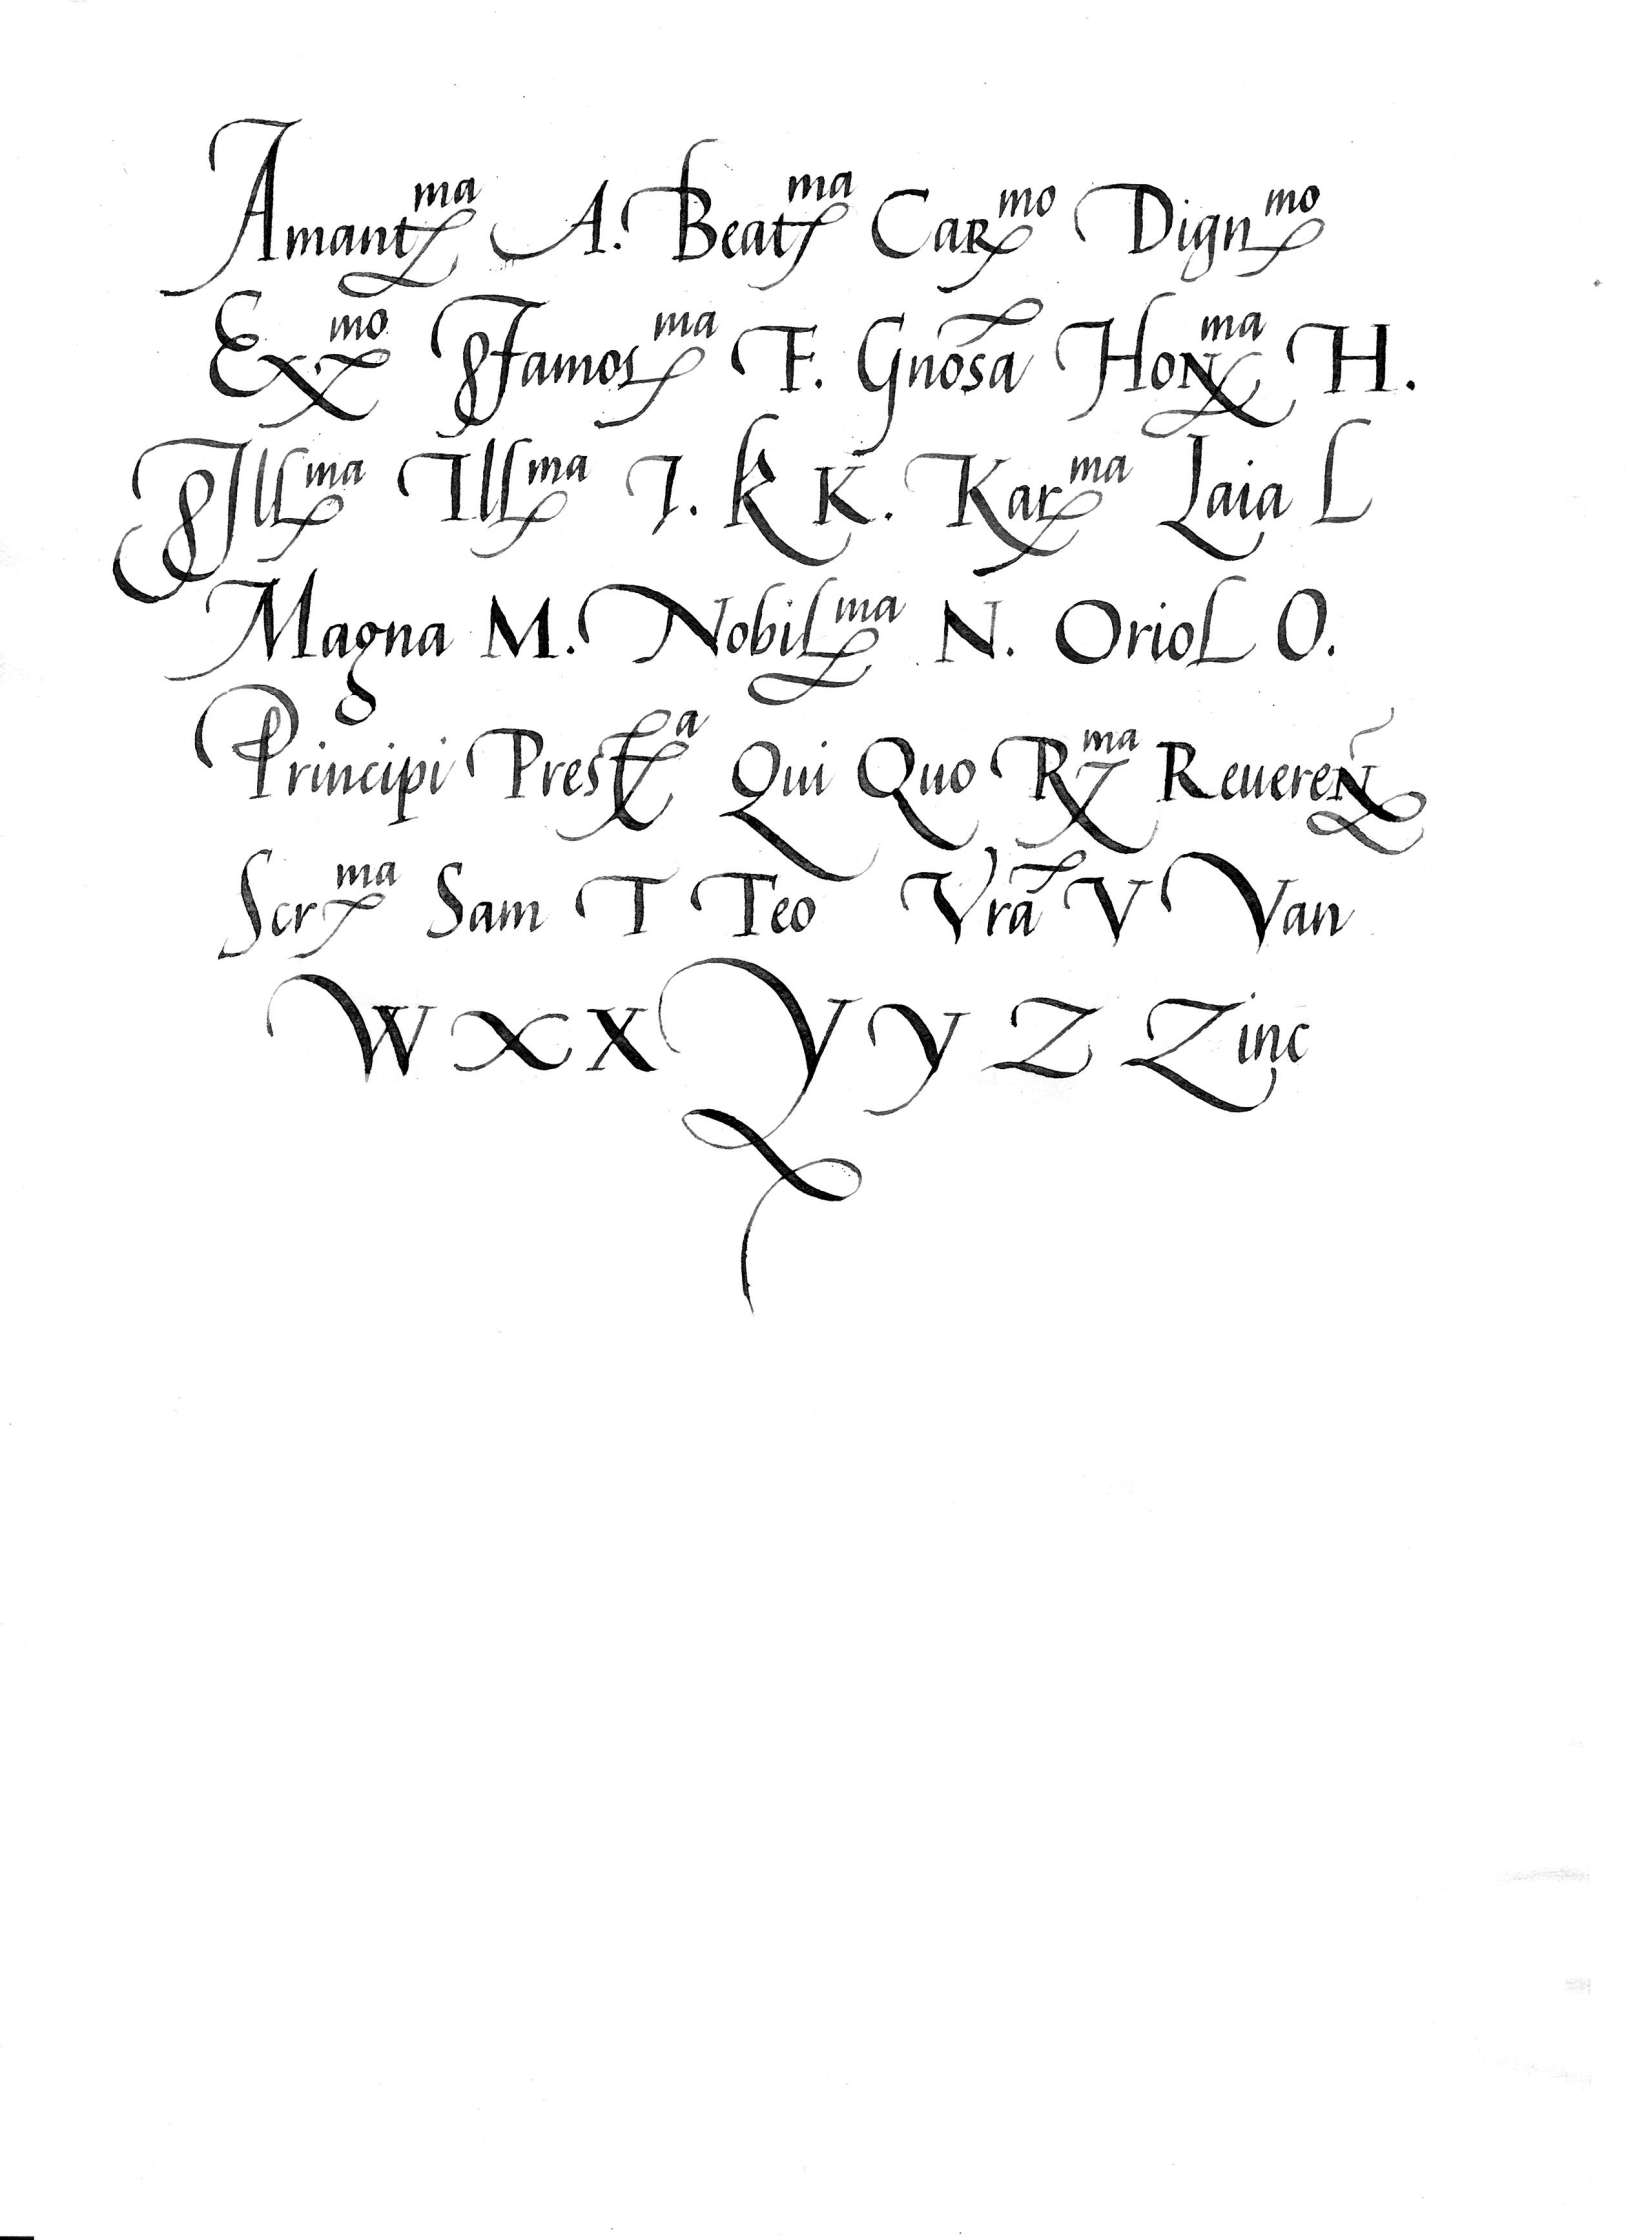 Amant^ma A. Beat^ma Car^mo Dign^mo
Ex^mo Famos^ma F. Gnõsa Hon^ma H.
Ill^ma Ill^ma I. k K. Kar^ma Laia L
Magna M. Nobil^ma N. Oriol O.
Principi Prest^a Qui Quo R^ma Reueren̄
Scr^ma Sam T Teo Vrã V Van
W X X Y Y Z Zinc